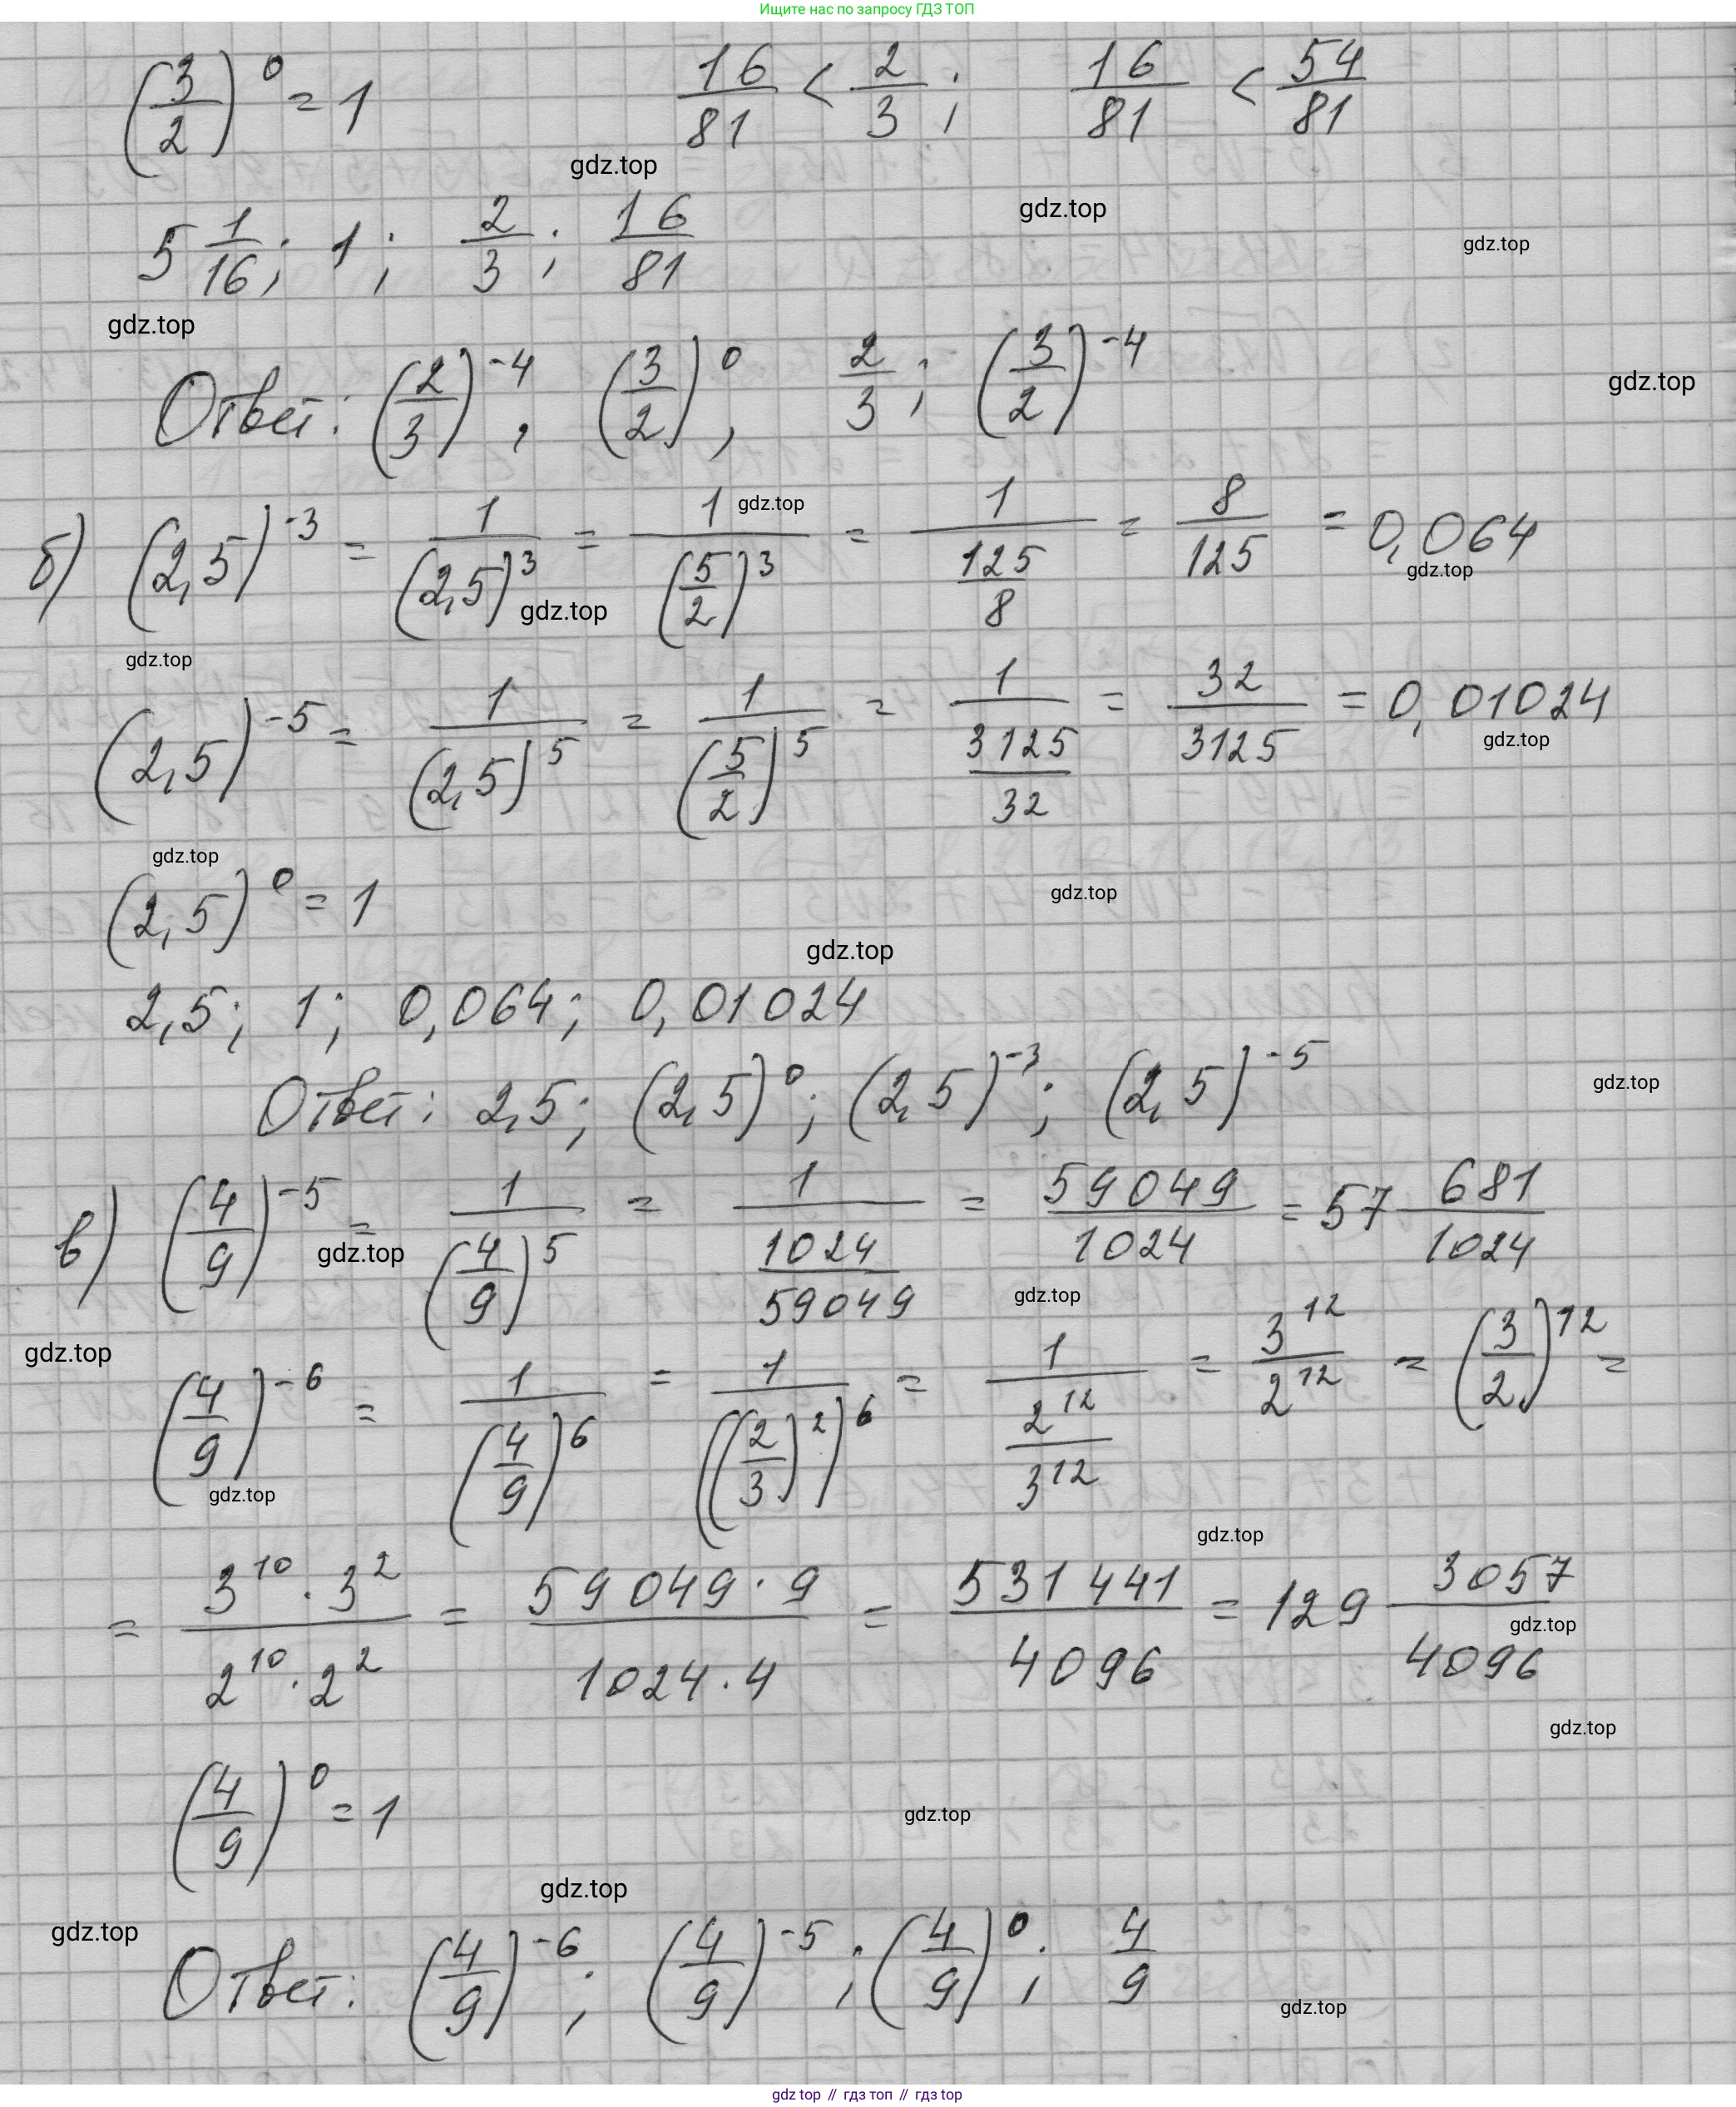 Ищите нас по запросу ГДЗ ТОП
(3/2)^0 = 1    16/81 < 2/3;    16/81 < 54/81
gdz.top
gdz.top
gdz.top
5 1/16; 1; 2/3; 16/81
gdz.top
gdz.top
Ответ: (2/3)^-4, (3/2)^0, 2/3; (3/2)^-4
gdz.top
б) (2,5)^-3 = 1/(2,5)^3 = 1/(5/2)^3 = 1/(125/8) = 8/125 = 0,064
gdz.top
gdz.top
gdz.top
(2,5)^-5 = 1/(2,5)^5 = 1/(5/2)^5 = 1/(3125/32) = 32/3125 = 0,01024
gdz.top
gdz.top
(2,5)^0 = 1
gdz.top
gdz.top
2,5; 1; 0,064; 0,01024
Ответ: 2,5; (2,5)^0; (2,5)^-3; (2,5)^-5
gdz.top
в) (4/9)^-5 = 1/(4/9)^5 = 1/(1024/59049) = 59049/1024 = 57 681/1024
gdz.top
gdz.top
gdz.top
(4/9)^-6 = 1/(4/9)^6 = 1/((2/3)^2)^6 = 1/(2^12/3^12) = 3^12/2^12 = (3/2)^12 =
gdz.top
gdz.top
= 3^10·3^2/2^10·2^2 = 59049·9/1024·4 = 531441/4096 = 129 3057/4096
gdz.top
gdz.top
(4/9)^0 = 1
gdz.top
gdz.top
gdz.top
Ответ: (4/9)^-6; (4/9)^-5; (4/9)^0; 4/9
gdz.top
gdz top // гдз топ // гдз top